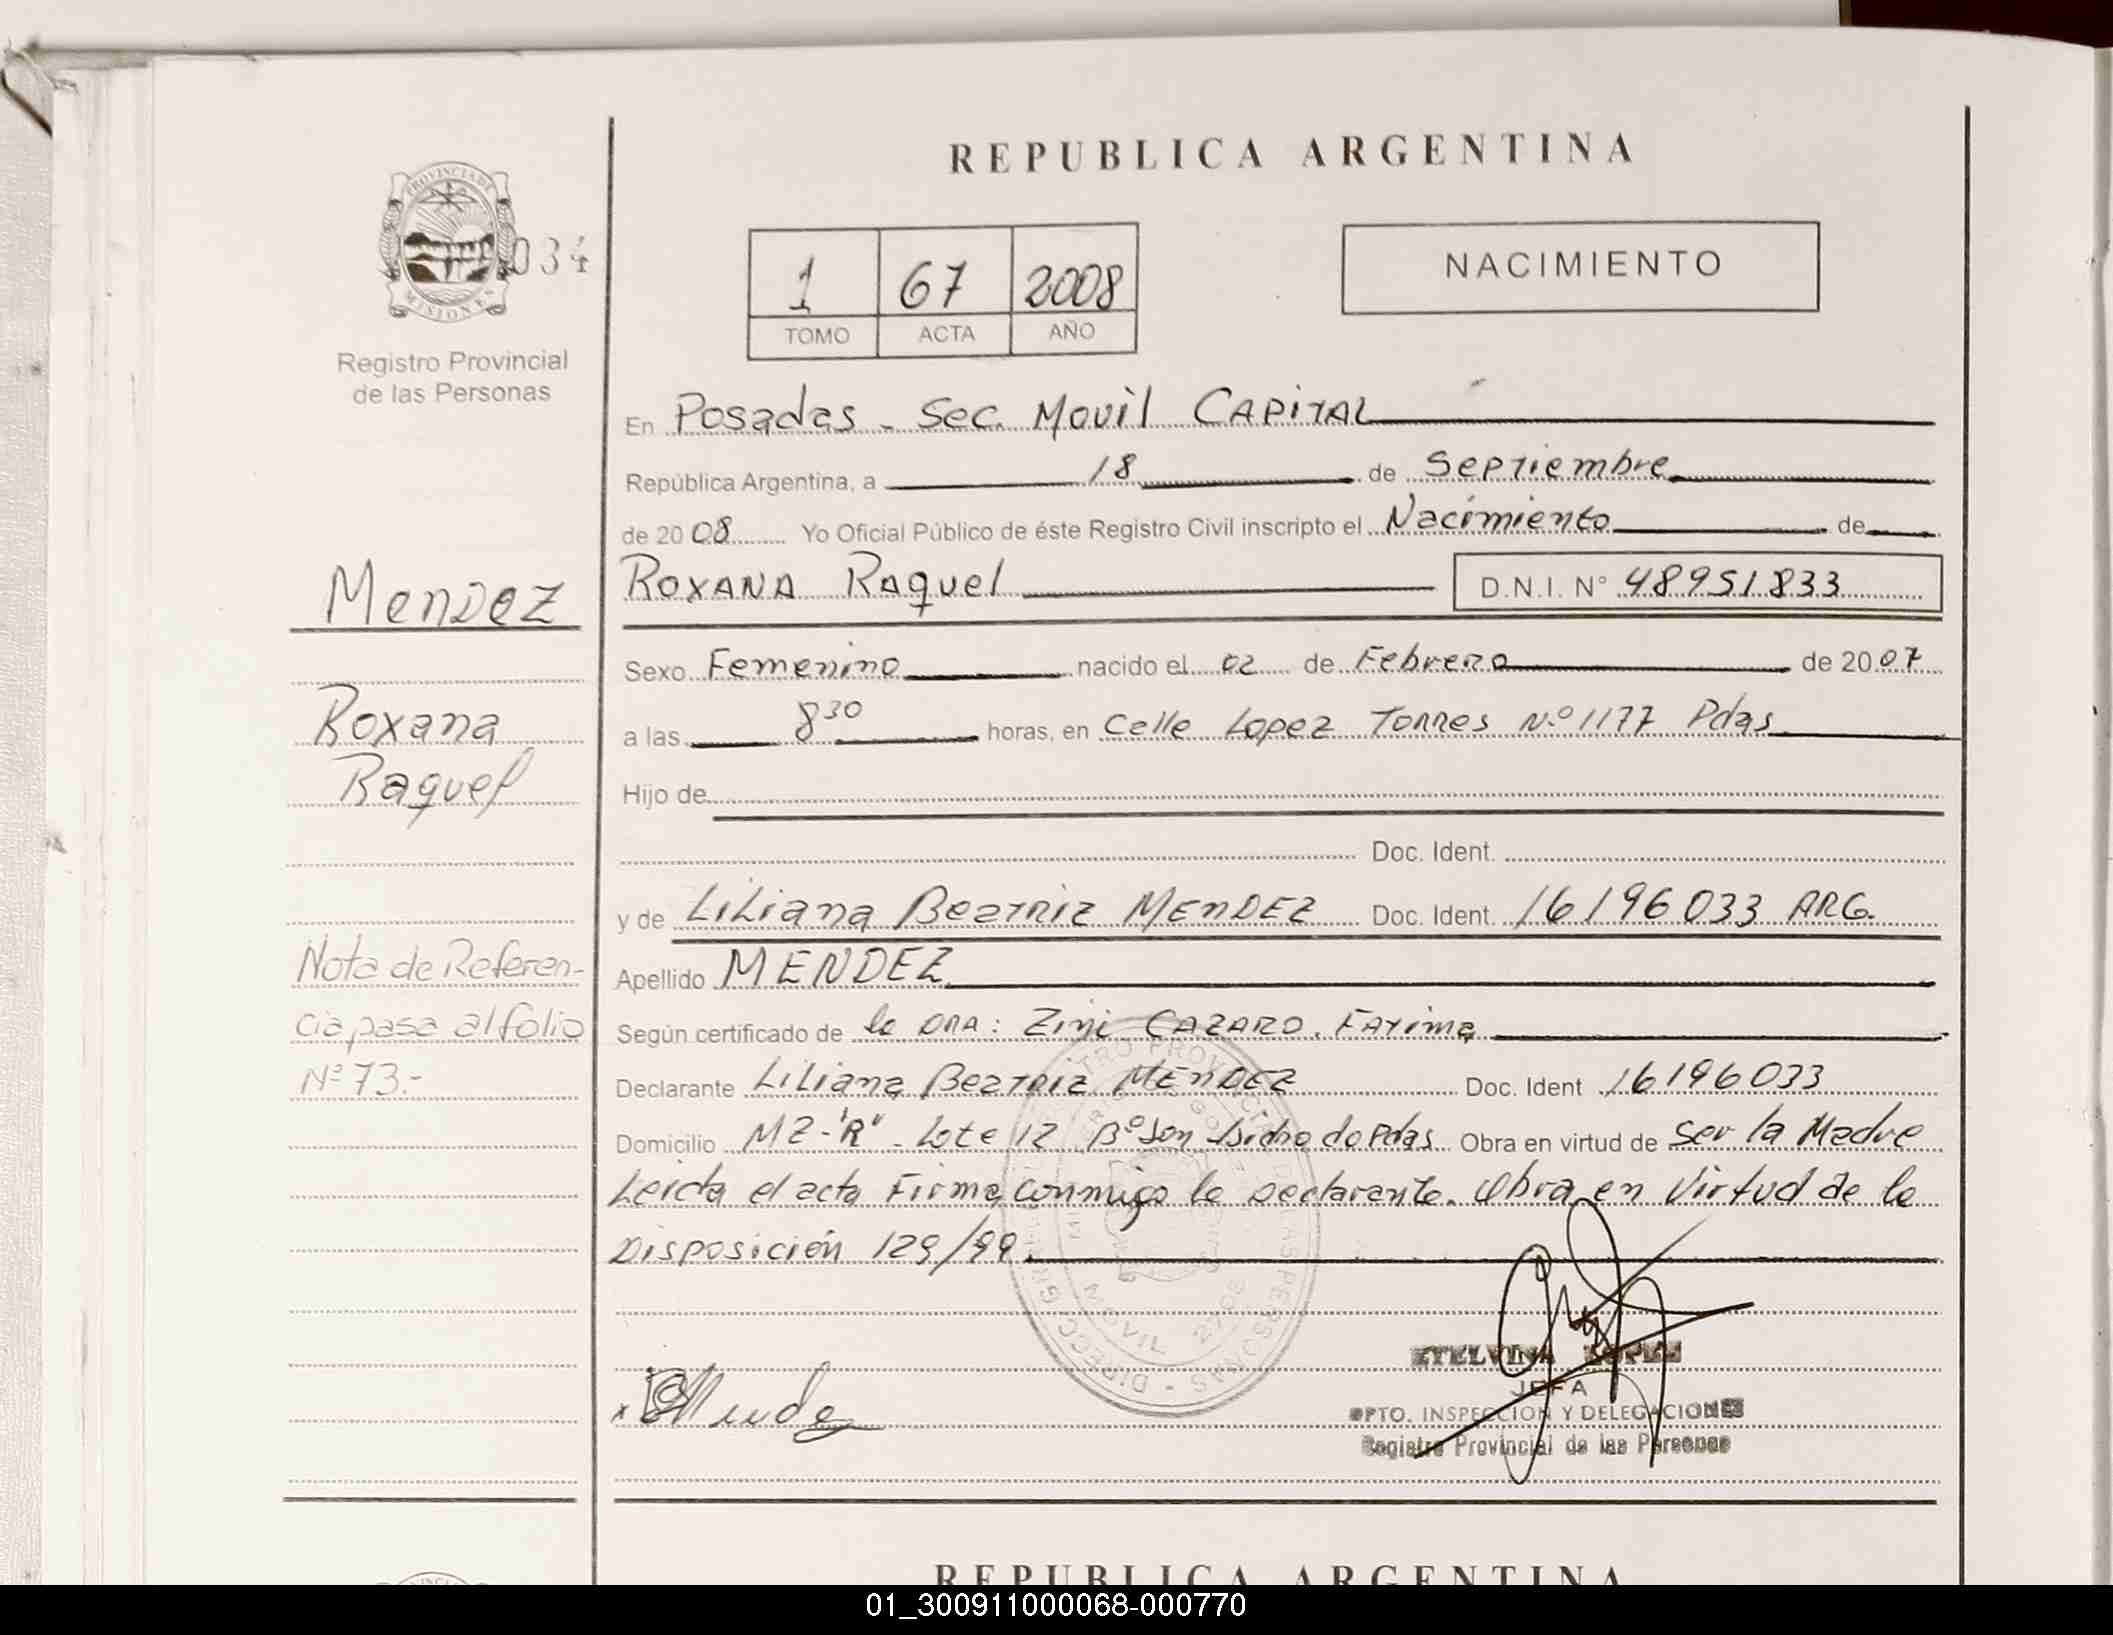 REPUBLICA ARGENTINA
PROVINCIA DE
MISIONES
034
Registro Provincial
de las Personas
1 67 2008
TOMO ACTA AÑO
NACIMIENTO
En Posadas - Sec. Movil CAPITAL
República Argentina, a 18 de Septiembre
de 20 08 Yo Oficial Público de éste Registro Civil inscripto el Nacimiento de
Mendez
ROXANA Raquel D.N.I. N° 48951833
Sexo Femenino nacido el 02 de Febrero de 20 07
Roxana
Raquel
a las 8 30 horas, en Calle Lopez Torres N.º 1177 Pdas
Hijo de
Doc. Ident.
y de Liliana Beatriz MENDEZ Doc. Ident. 16196033 ARG.
Nota de Referen-
cia pasa al folio
Nº 73.-
Apellido MENDEZ
Según certificado de la DRA: Zini CAZARO, Fatima
Declarante Liliana Beatriz MENDEZ Doc. Ident 16196033
Domicilio MZ-"R" - Lote 12 Bº San Isidro de Pdas. Obra en virtud de ser la Madre
Leida el acta Firma conmigo la declarante. Obra en virtud de la
Disposición 129/99.
MOVIL 2708
ETELVINA LOPEZ
JEFA
DPTO. INSPECCION Y DELEGACIONES
Registro Provincial de las Personas
REPUBLICA ARGENTINA
01_300911000068-000770